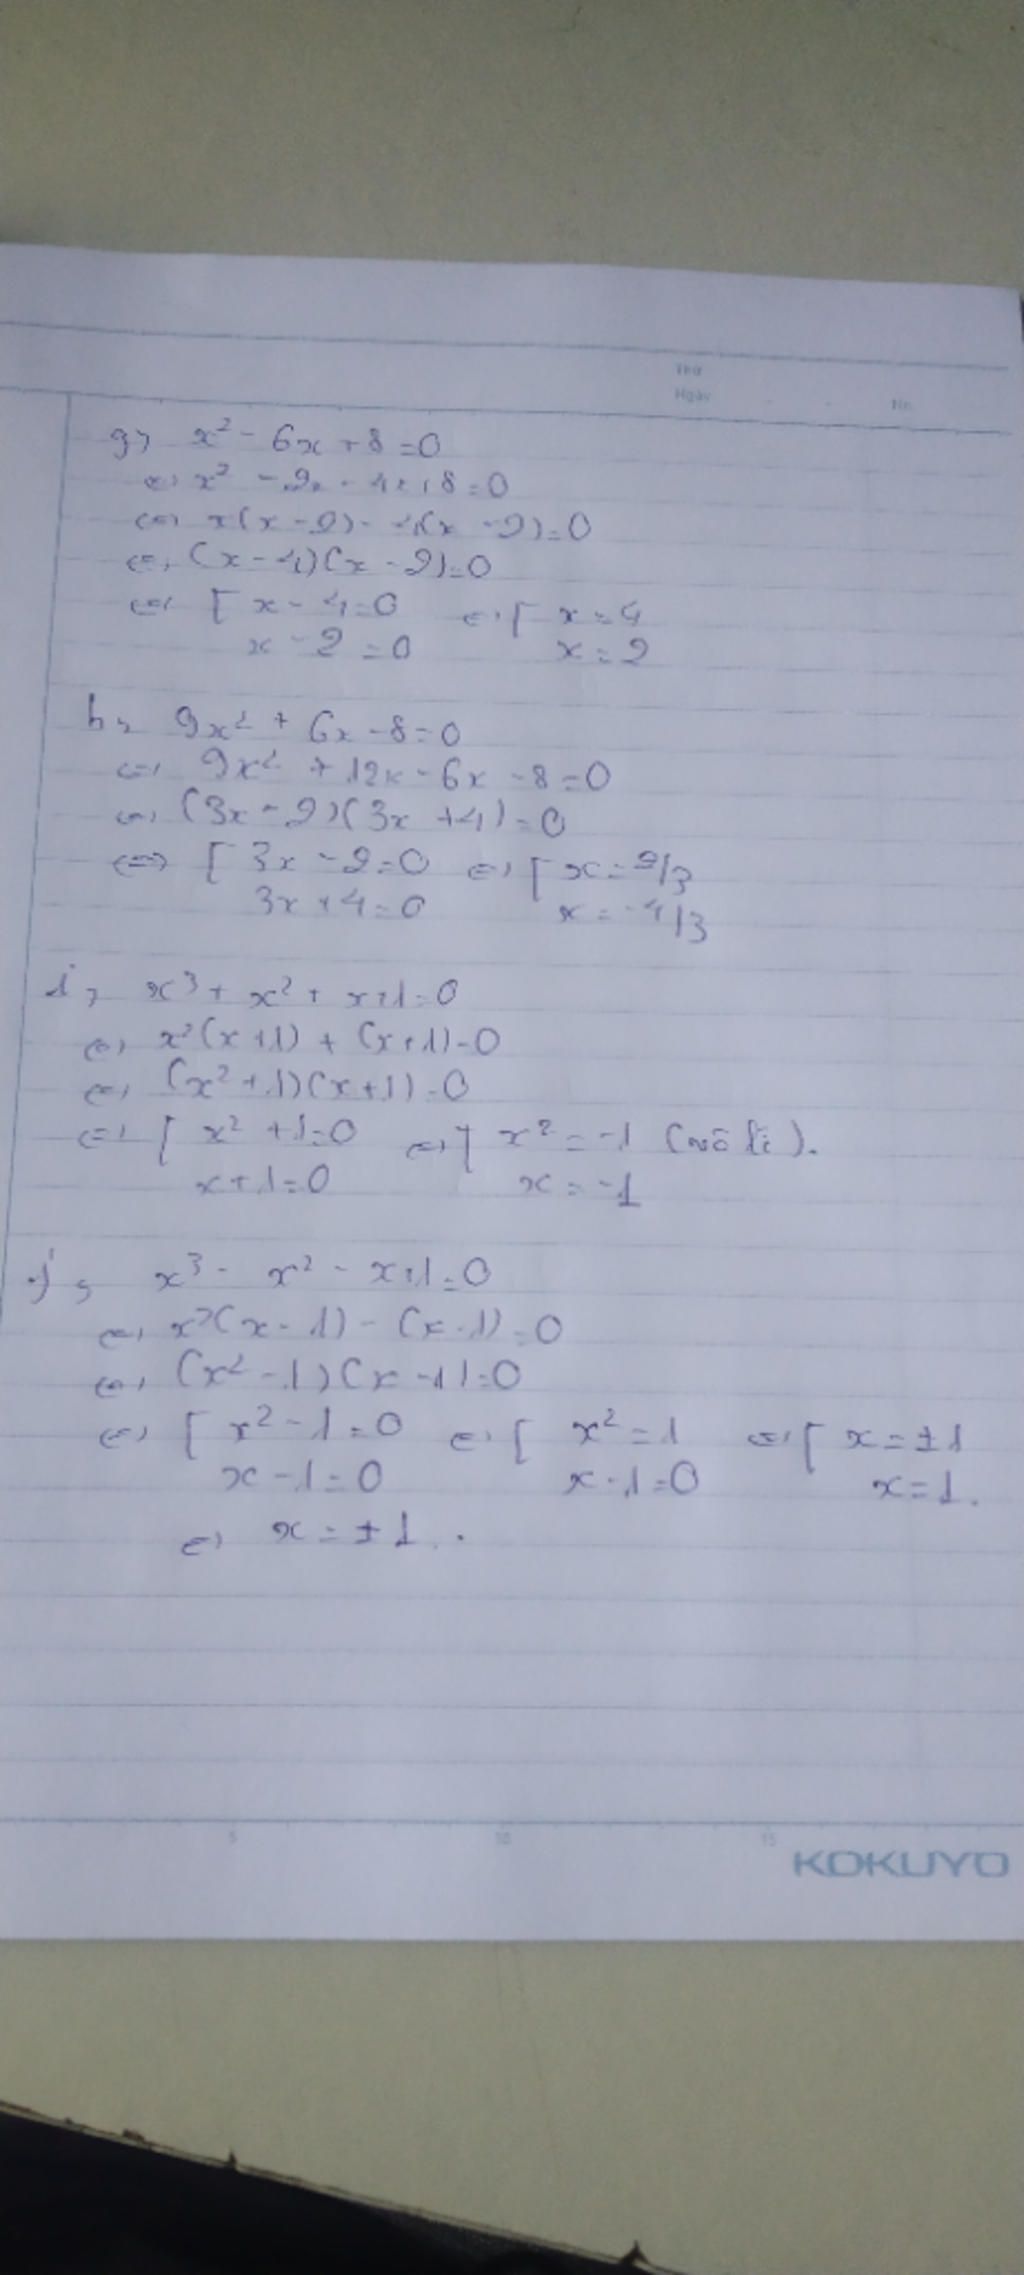 Thứ
Ngày . . No.
g, x² - 6x + 8 = 0
<=> x² - 2x - 4x + 8 = 0
<=> x(x - 2) - 4(x - 2) = 0
<=> (x - 4)(x - 2) = 0
<=> [ x - 4 = 0 <=> [ x = 4
x - 2 = 0 x = 2
h, 9x² + 6x - 8 = 0
<=> 9x² + 12x - 6x - 8 = 0
<=> (3x - 2)(3x + 4) = 0
<=> [ 3x - 2 = 0 <=> [ x = 2/3
3x + 4 = 0 x = -4/3
i, x³ + x² + x + 1 = 0
<=> x²(x + 1) + (x + 1) = 0
<=> (x² + 1)(x + 1) = 0
<=> [ x² + 1 = 0 <=> [ x² = -1 (vô lí).
x + 1 = 0 x = -1
j, x³ - x² - x + 1 = 0
<=> x²(x - 1) - (x - 1) = 0
<=> (x² - 1)(x - 1) = 0
<=> [ x² - 1 = 0 <=> [ x² = 1 <=> [ x = ±1
x - 1 = 0 x - 1 = 0 x = 1.
<=> x = ±1.
5 10 15
KOKUYO